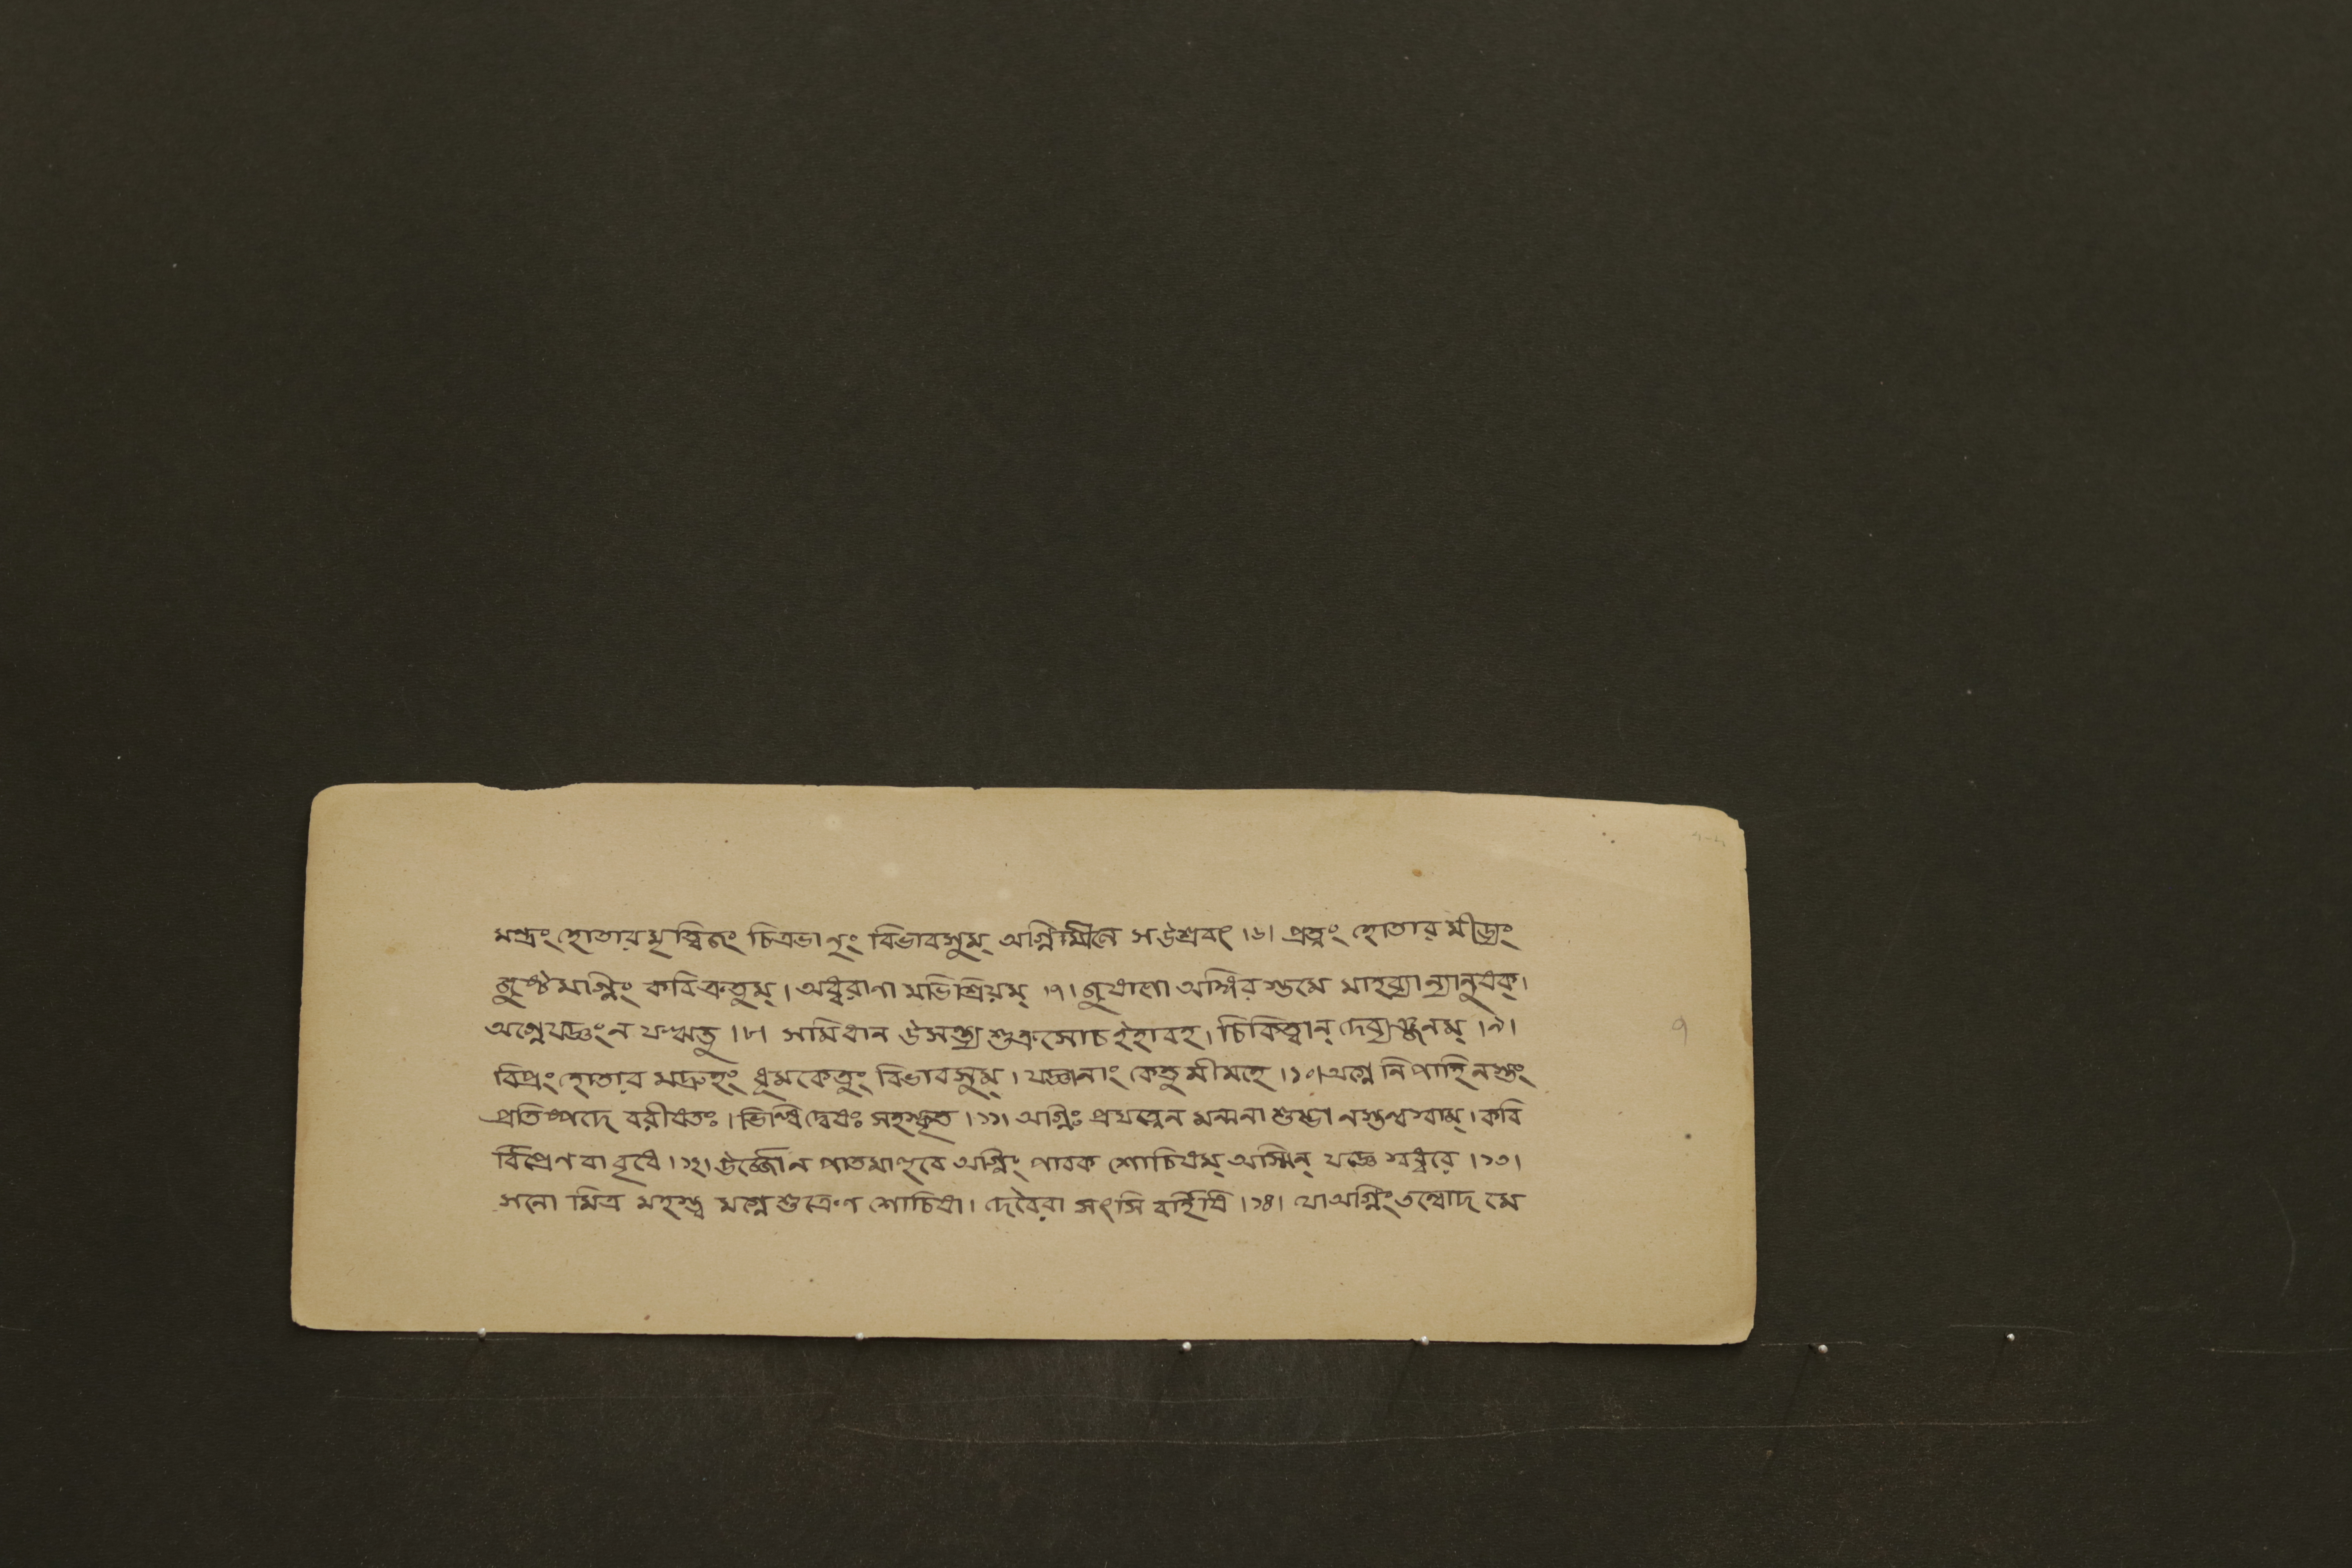 মন্দ্রং হোতার মৃত্বিজং চিত্রভানুং বিভাবসুম্ অগ্নিমীলে সউশ্রবৎ ।৬। প্রত্নং হোতার মীড্যং
জুষ্টমাগ্নিং কবিক্রতুম্। অধ্বরাণা মভিশ্রিয়ম্ ।৭। জুষাণো অঙ্গিরস্তমে মাহব্যান্যানুষক্।
অগ্নেযজ্ঞংন যঋতু ।৮। সমিধান উসন্ত্য শুক্রসোচ ইহাবহ। চিকিত্বান্ দেব্যঞ্জনম্ ।৯।
বিপ্রং হোতার মদ্রুহং ধূমকেতুং বিভাবসুম্। যজ্ঞানাং কেতু মীমহে ।১০। অগ্নে নি পাহি নস্ত্বং
প্রতিষ্পদে বরীষতঃ। ভিন্ধি দ্বেষঃ সহস্কৃত ।১১। অগ্নিঃ প্রযত্নেন মন্মনা শুম্ভা নস্তন্বংবাম্। কবি
র্বিপ্রেণ বা বৃধে ।১২। উর্জ্জো ন পাতমা হুবে অগ্নিং পাবক শোচিষম্ অস্মিন্ যজ্ঞে স্বধ্বরে ।১৩।
সনো মিত্র মহস্ত্ব মগ্নে শুক্রেণ শোচিষা। দেবৈরা সৎসি বর্হিষি ।১৪। যোঅগ্নিং তন্বোদ মে
৭